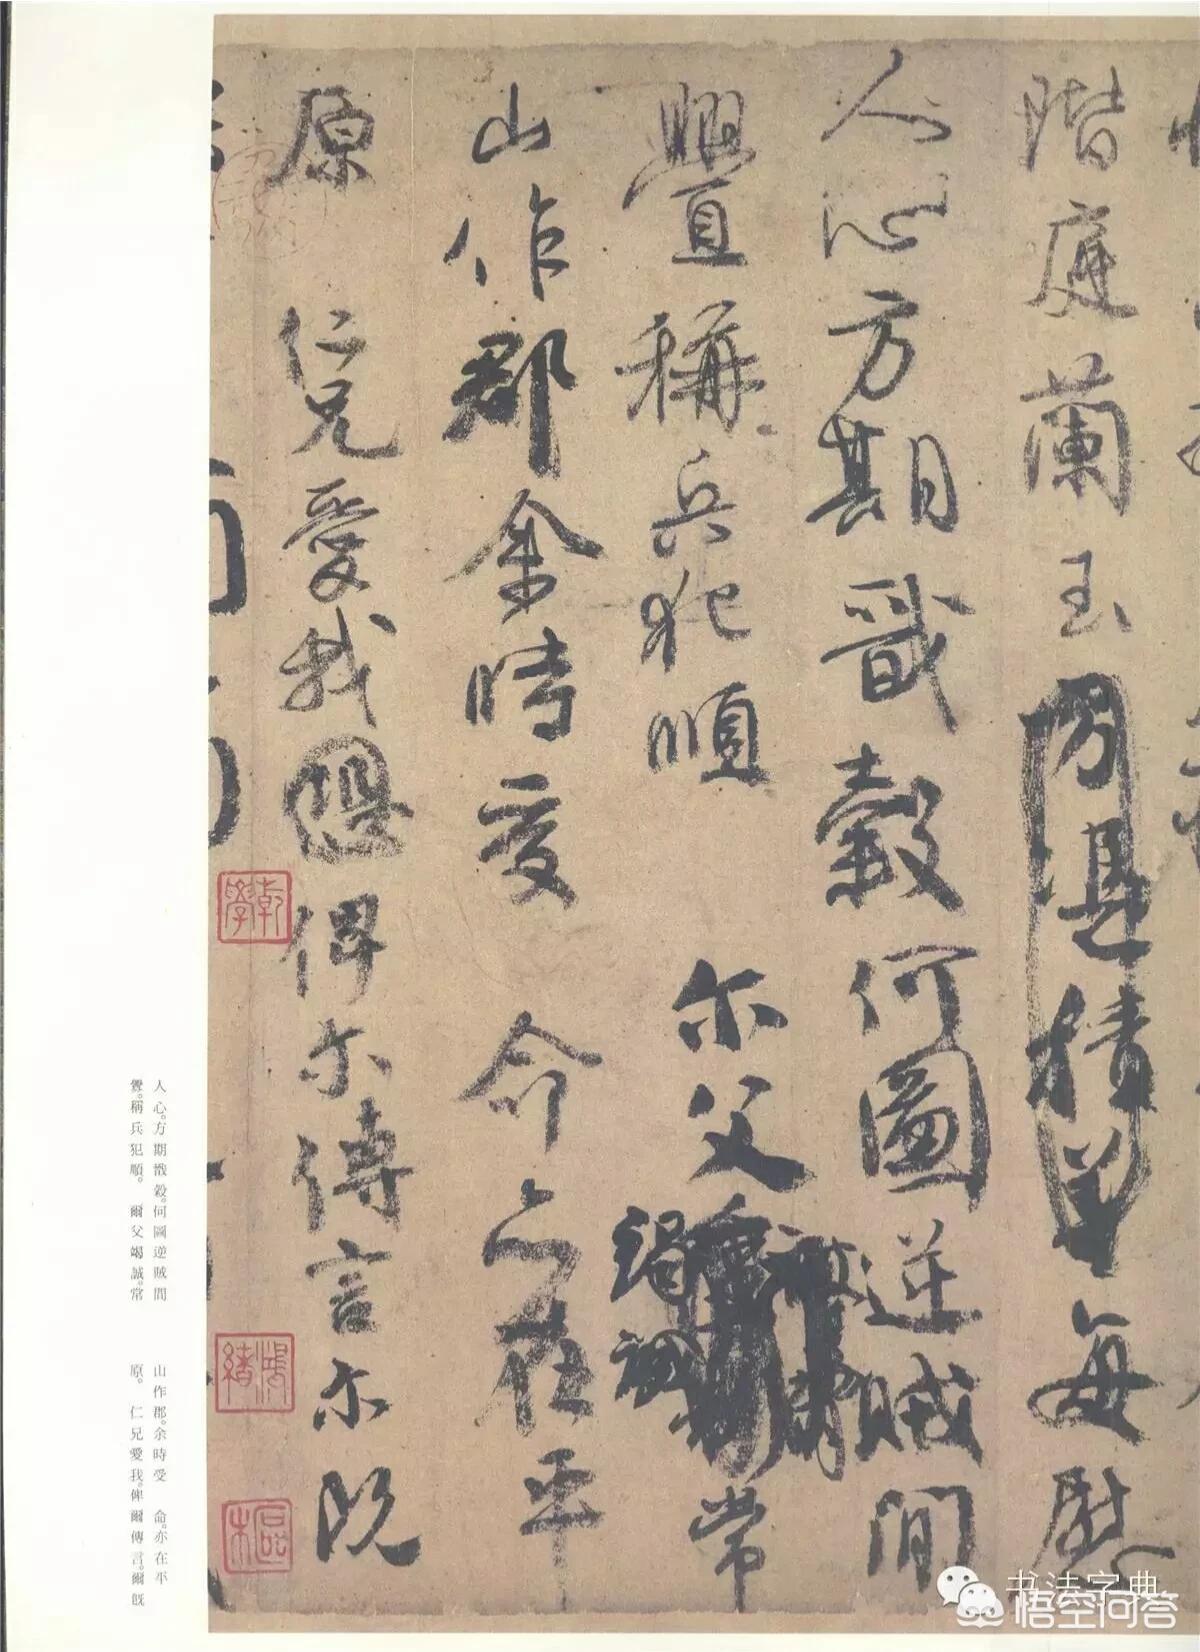 階庭蘭玉方憑積善每慰
人心方期戩穀何圖逆賊間
舋稱兵犯順 尔父竭誠常
山作郡余時受 命亦在平
原 仁兄愛我恐俾尔傳言尔既
人心。方期戩穀。何圖逆賊間
舋。稱兵犯順。爾父竭誠。常
山作郡。余時受 命。亦在平
原。仁兄愛我。俾爾傳言。爾既
乾學
鴻緒
書法字典
悟空问答